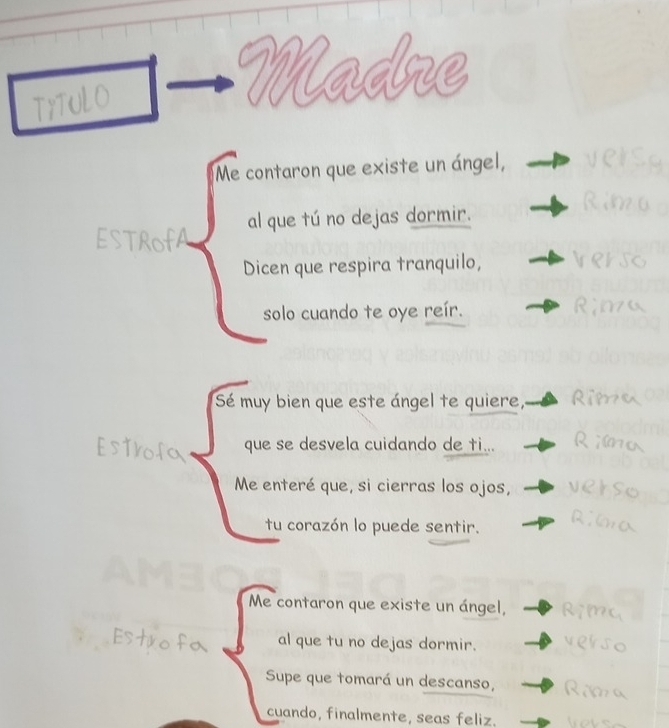 TITULO Madre
Me contaron que existe un ángel, verso
al que tú no dejas dormir. Rima
ESTROfA
Dicen que respira tranquilo, verso
solo cuando te oye reír. Rima
Sé muy bien que este ángel te quiere, Rima
Estrofa que se desvela cuidando de ti... Rima
Me enteré que, si cierras los ojos, verso
tu corazón lo puede sentir. Rima
Me contaron que existe un ángel, Rima
Estrofa al que tu no dejas dormir. verso
Supe que tomará un descanso, Rima
cuando, finalmente, seas feliz. verso